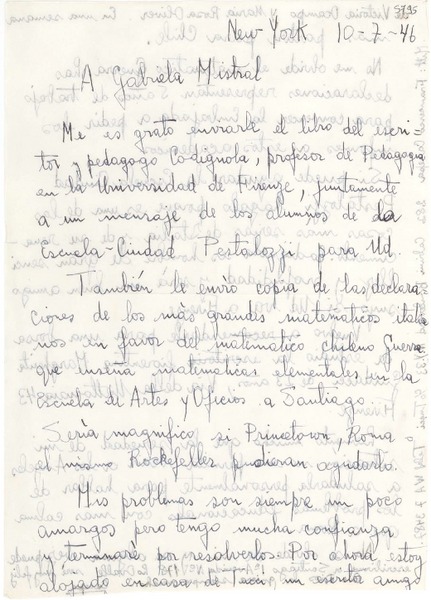 5795
New-York 10-7-46
A Gabriela Mistral
Me es grato enviarle el libro del escri
tor y pedagogo Codignola, profesor de Pedagogia
en la Universidad de Firenze, juntamente
a un mensaje de los alumnos de la
Escuela-Ciudad Pestalozzi para Ud.
También le envio copia de las declara
ciones de los màs grandes matematicos italia
nos en favor del matematico chileno Guerra
que enseña matematicas elementales en la
escuela de Artes y Oficios a Santiago.
Sería magnifico si Princetown, Roma
el mismo Rockefeller pudieran ayudarlo.
Mis problemas son siempre un poco
amargos pero tengo mucha confianza
y terminaré por resolverlos. Por ahora estoy
alojado en casa de un escritor amigo